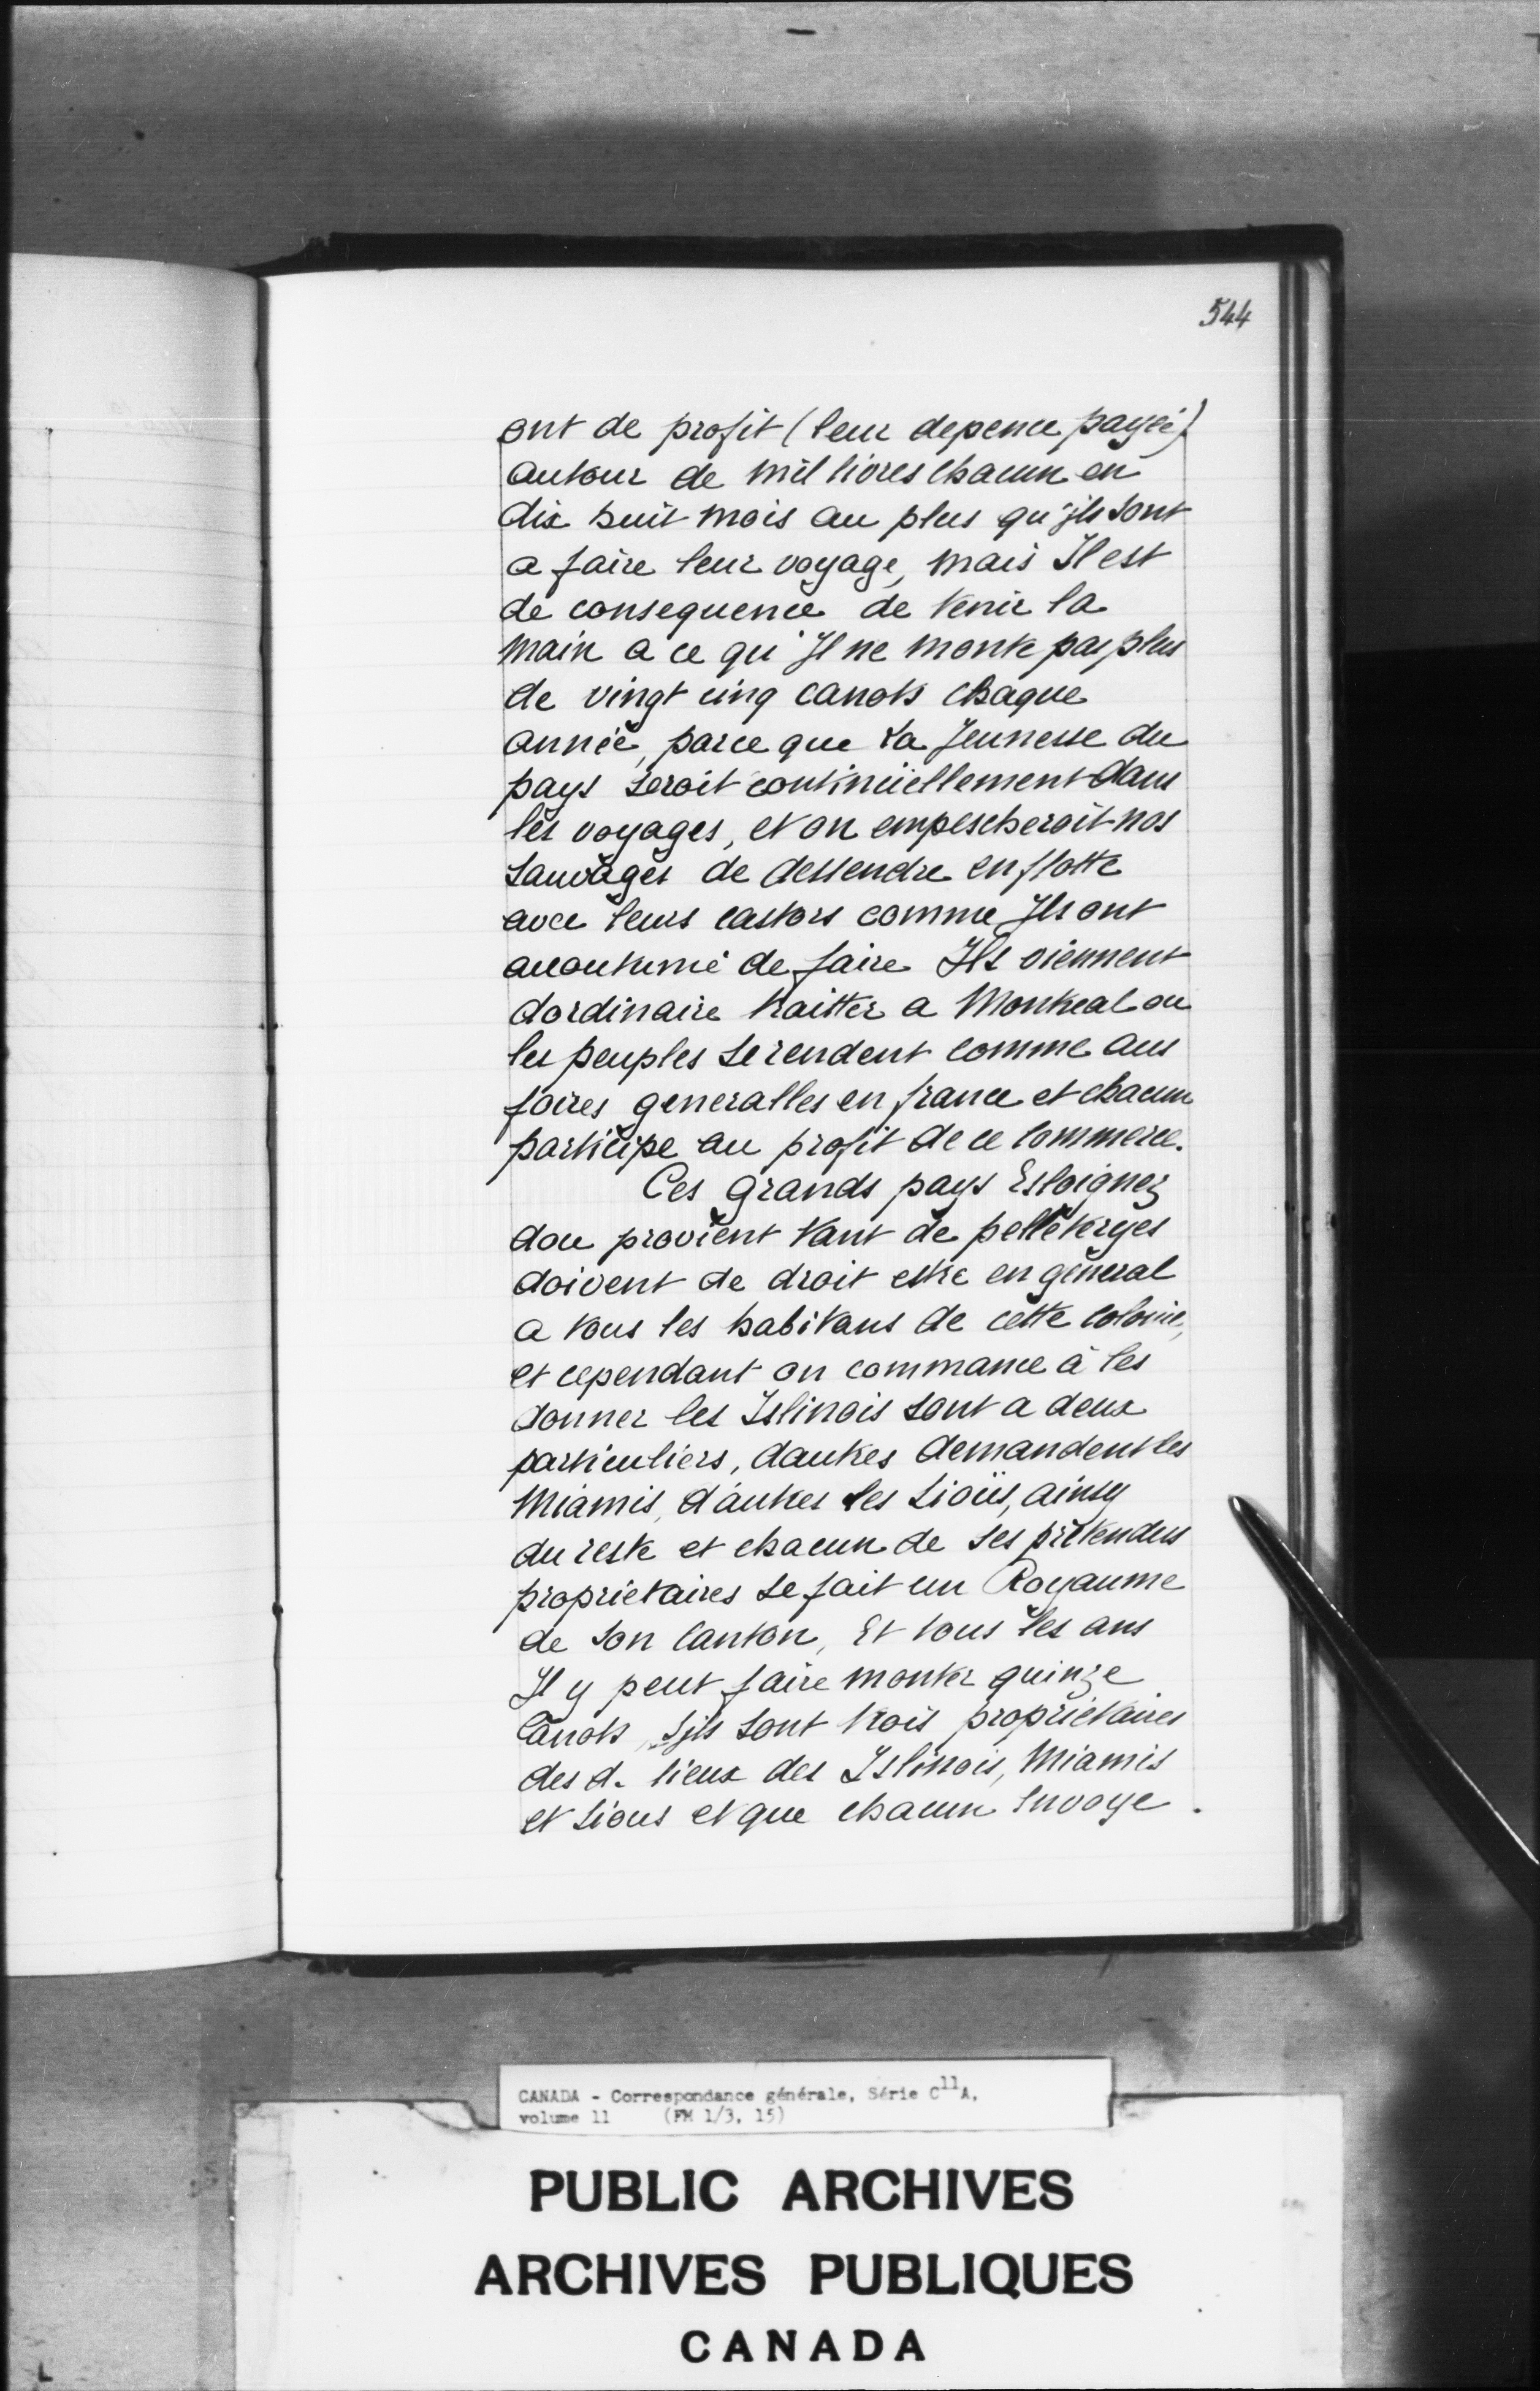 544
ont de profit (leur depence payée)
autour de mil livres chacun en
dix huit mois au plus qu'jls sont
a faire leur voyage, mais Il est
de consequence de tenir la
main a ce qu'Il ne monte pas plus
de vingt cinq canots chaque
année, parce que la Jeunesse du
pays seroit continüellement dans
les voyages, et on empescheroit nos
sauvages de dessendre en flotte
avec leurs castors comme Ils ont
accoutumé de faire Ils viennent
dordinaire traitter a Montreal ou
les peuples se rendent comme aus
foires generalles en france et chacun
participe au profit de ce commerce.
Ces grands pays Esloignez
dou provient tant de pelleteryes
doivent de droit estre en général
a tous les habitans de cette colonie,
et cependant on commance à les
donner les Islinois sont a deux
particuliers, dautres demandent les
Miamis, d'autres les Sioüs, ainsy
du reste et chacun de ses prétendus
proprietaires se fait un Royaume
de son Canton, Et tous les ans
Il y peut faire monter quinze
Canots, sjls sont trois propriétaires
des d. lieux des Islinois, Miamis
et Sious et que chacun Envoye.
CANADA - Correspondance générale, Série C11A,
volume 11 (FM 1/3, 15)
PUBLIC ARCHIVES
ARCHIVES PUBLIQUES
CANADA